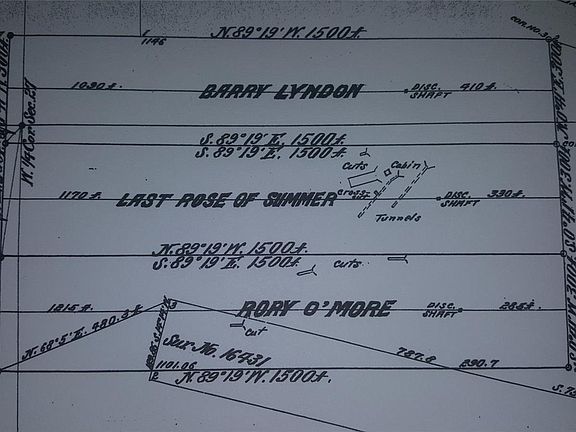 N. 89° 19' W. 1500 ft.
COR. NO. 3
1146
1090 ft.
BARRY LYNDON
DISC. SHAFT
410 ft.
N. 1/4 Cor. Sec. 27
S. 89° 19' E. 1500 ft.
S. 89° 19' E. 1500 ft.
Cuts
Cabin
1170 ft.
LAST ROSE OF SUMMER
DISC. SHAFT
330 ft.
Tunnels
N. 89° 19' W. 1500 ft.
S. 89° 19' E. 1500 ft.
Cuts
1215 ft.
RORY O'MORE
DISC. SHAFT
285 ft.
Cut
Sur. No. 16731
787.8
290.7
1101.06
2
N. 89° 19' W. 1500 ft.